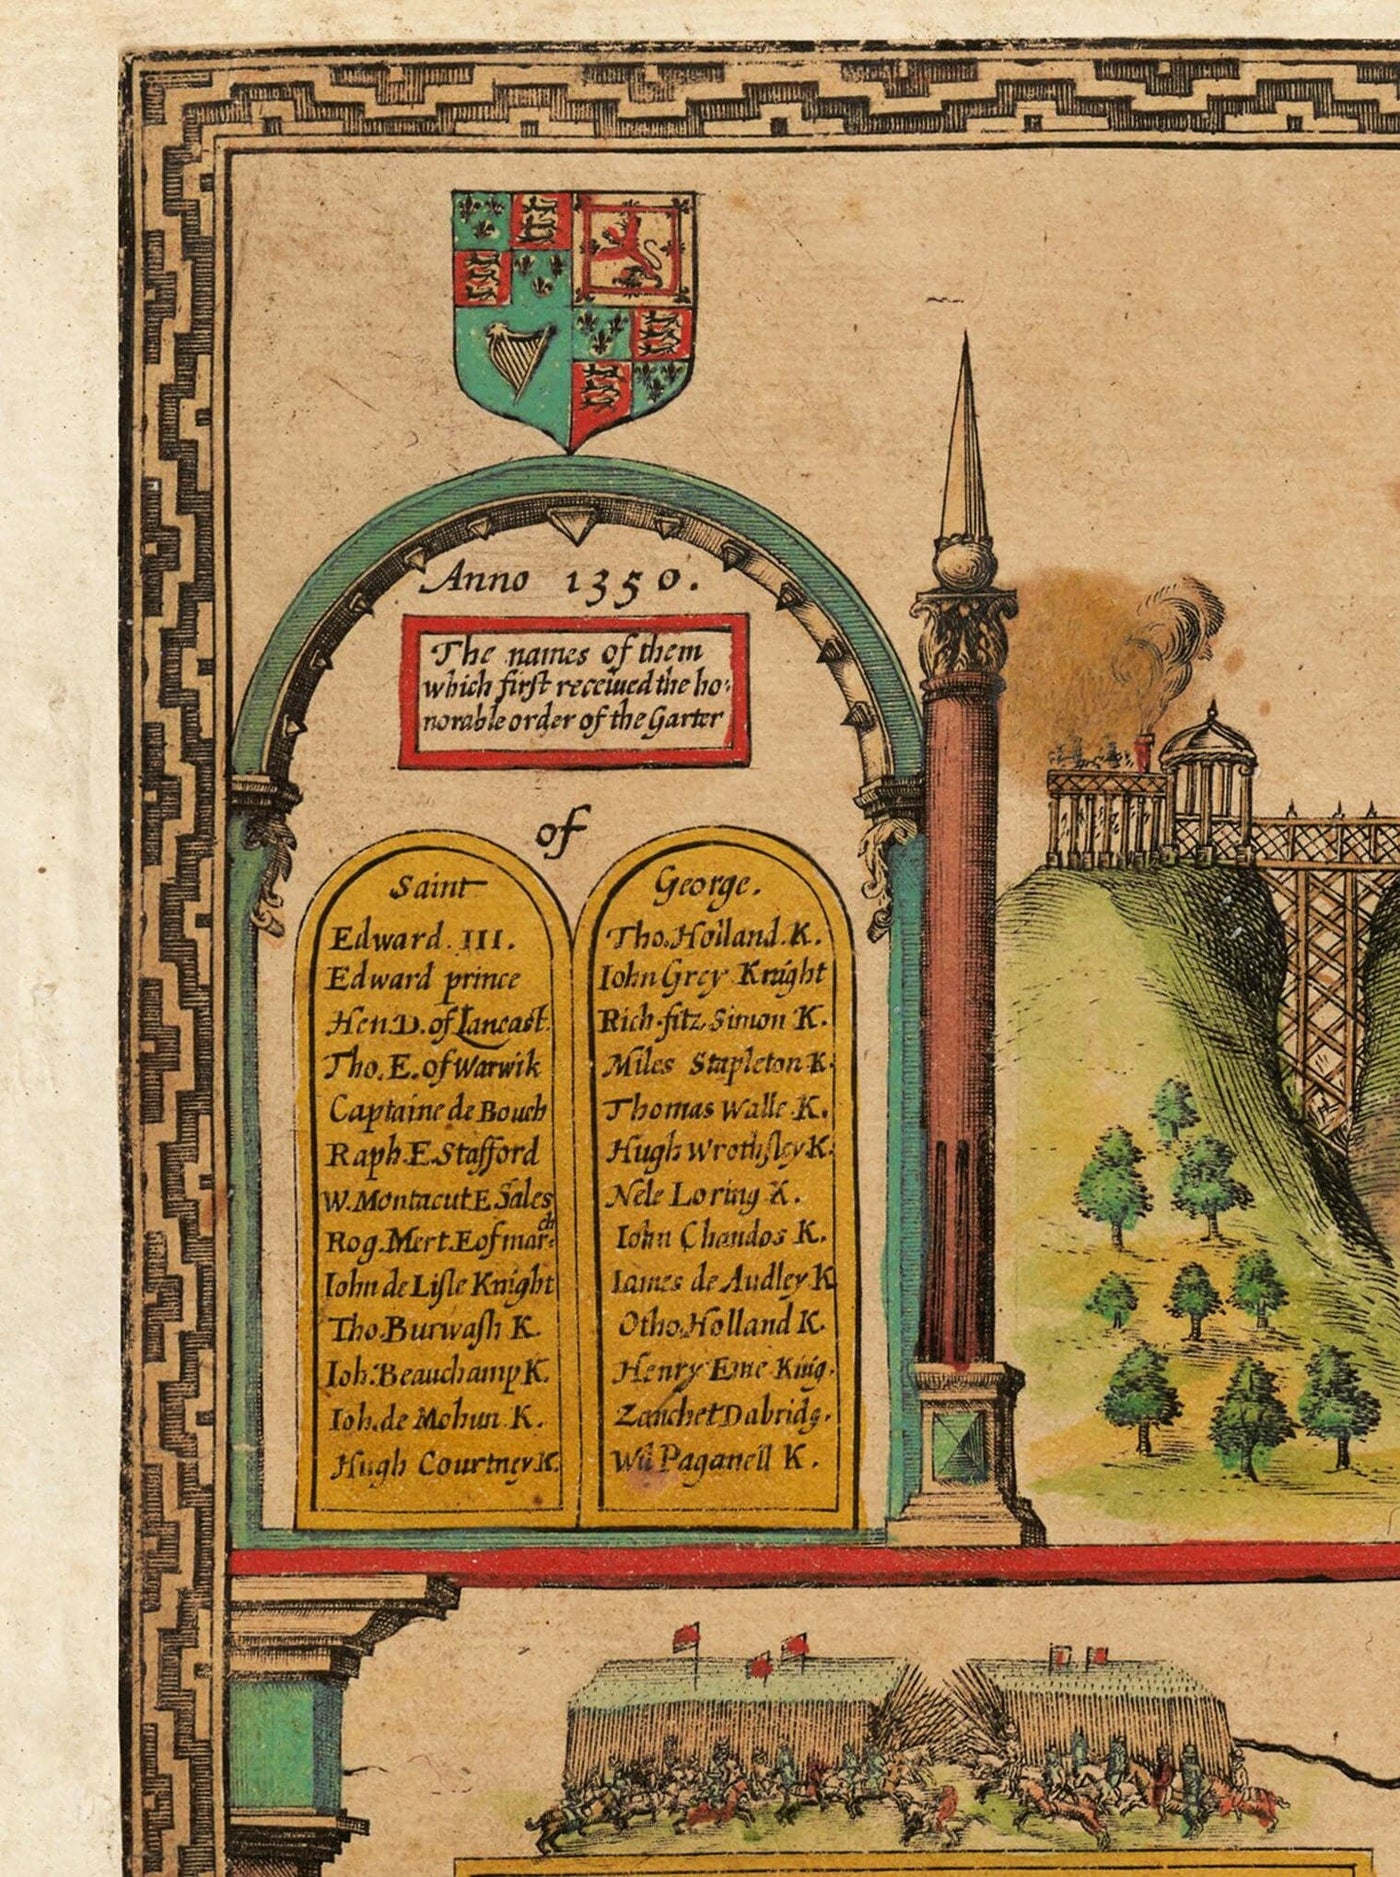 Anno 1350.
The names of them
which first receiued the ho:
norable order of the Garter
of
Saint
Edward. III.
Edward prince
Hen.D. of Lancast.
Tho. E. of Warwik
Captaine de Bouch
Raph. E. Stafford
W. Montacut E. Sales
Rog. Mert. E of mar:ch
Iohn de Lisle Knight
Tho. Burwash K.
Ioh. Beauchamp K.
Ioh. de Mohun K.
Hugh Courtney K.
George.
Tho. Holland. K.
Iohn Grey Knight
Rich. fitz. Simon K.
Miles Stapleton K.
Thomas Walle K.
Hugh Wrothsley K.
Nele Loring K.
Iohn Chandos K.
Iames de Audley K
Otho. Holland K.
Henry Eme Knig.
Zanchet Dabridg.
Wil Paganell K.